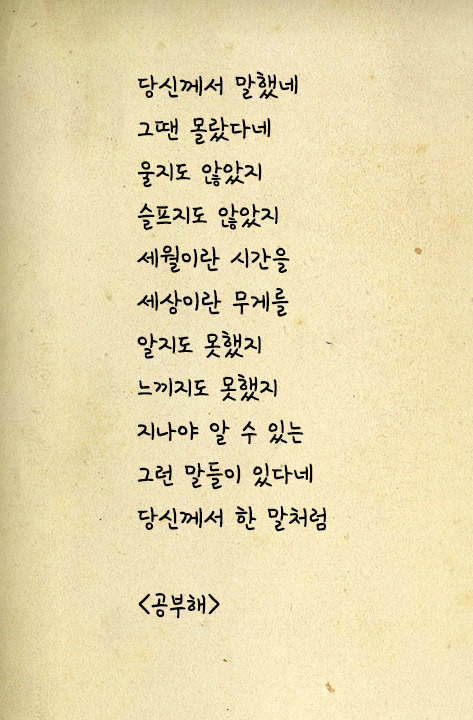 당신께서 말했네
그땐 몰랐다네
울지도 않았지
슬프지도 않았지
세월이란 시간을
세상이란 무게를
알지도 못했지
느끼지도 못했지
지나야 알 수 있는
그런 말들이 있다네
당신께서 한 말처럼
<공부해>